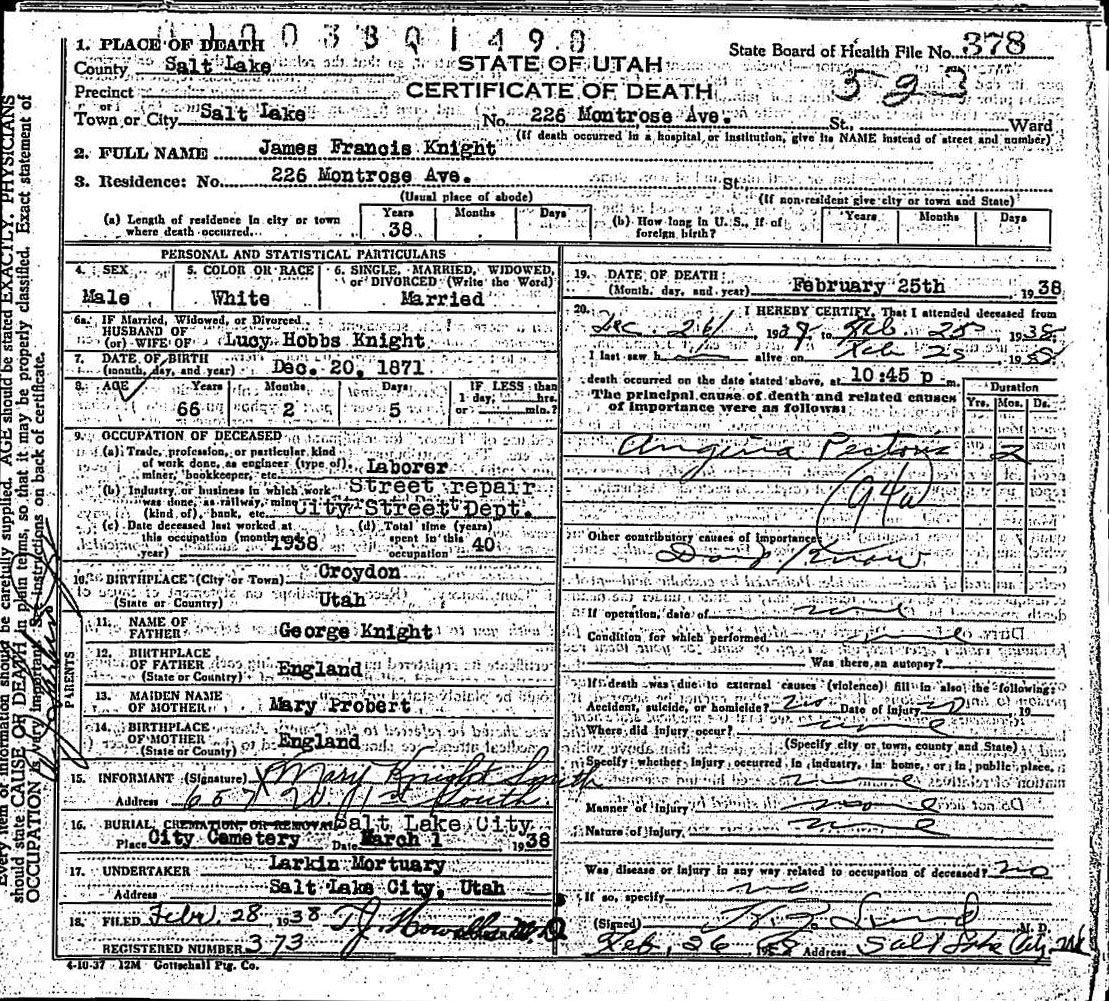 01003801498
1. PLACE OF DEATH
County Salt Lake
STATE OF UTAH
State Board of Health File No. 378
Precinct
CERTIFICATE OF DEATH
523
or
Town or City Salt Lake No. 226 Montrose Ave. St., Ward
(If death occurred in a hospital or institution, give its NAME instead of street and number)
2. FULL NAME James Francis Knight
3. Residence: No. 226 Montrose Ave. St.
(Usual place of abode) (If non-resident give city or town and State)
(a) Length of residence in city or town where death occurred. Years 38 Months Days
(b) How long in U. S., if of foreign birth? Years Months Days
PERSONAL AND STATISTICAL PARTICULARS
4. SEX Male
5. COLOR OR RACE White
6. SINGLE, MARRIED, WIDOWED, or DIVORCED (Write the Word) Married
6a. IF Married, Widowed, or Divorced
HUSBAND OF
(or) WIFE OF Lucy Hobbs Knight
7. DATE OF BIRTH
(month, day, and year) Dec. 20, 1871
8. AGE Years 66 Months 2 Days 5 IF LESS than 1 day, hrs. or min.?
9. OCCUPATION OF DECEASED
(a) Trade, profession, or particular kind
of work done, as engineer (type of),
miner, bookkeeper, etc. Laborer
(b) Industry or business in which work
was done, as railway, mine
(kind of), bank, etc. Street repair City Street Dept.
(c) Date deceased last worked at
this occupation (month and
year) 1938
(d) Total time (years)
spent in this
occupation 40
10. BIRTHPLACE (City or Town) Croydon
(State or Country) Utah
PARENTS
11. NAME OF
FATHER George Knight
12. BIRTHPLACE
OF FATHER England
(State or Country)
13. MAIDEN NAME
OF MOTHER Mary Probert
14. BIRTHPLACE
OF MOTHER England
(State or County)
15. INFORMANT (Signature) X Mary Knight Smith
Address 657 W. 1st South
16. BURIAL, CREMATION, OR REMOVAL Salt Lake City
Place City Cemetery Date March 1 1938
17. UNDERTAKER Larkin Mortuary
Address Salt Lake City, Utah
18. FILED Feb. 28 1938
REGISTERED NUMBER 373
19. DATE OF DEATH:
(Month, day, and year) February 25th 1938
20. I HEREBY CERTIFY, That I attended deceased from
Dec. 26 to Feb. 25 1938
I last saw h alive on Feb 25 1938
death occurred on the date stated above, at 10:45 p m.
The principal cause of death and related causes
of importance were as follows:
Duration
Yrs. Mos. Ds.
Angina Pectoris 2
94a
Other contributory causes of importance
Don't Know
If operation, date of none
Condition for which performed
Was there an autopsy?
If death was due to external causes (violence) fill in also the following:
Accident, suicide, or homicide? no Date of injury no 19
Where did injury occur? none
(Specify city or town, county and State)
Specify whether injury occurred in industry, in home, or in public place.
none
Manner of injury none
Nature of injury none
Was disease or injury in any way related to occupation of deceased? no
If so, specify no
(Signed) M. D.
Feb. 26 1938 Address Salt Lake City, Ut
4-10-37 12M Gottschall Ptg. Co.
Every item of information should be carefully supplied. AGE should be stated EXACTLY. PHYSICIANS
should state CAUSE OF DEATH in plain terms, so that it may be properly classified. Exact statement of
OCCUPATION is very important. See instructions on back of certificate.